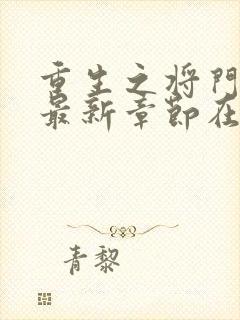 重生之将门
最新章节在
青黎